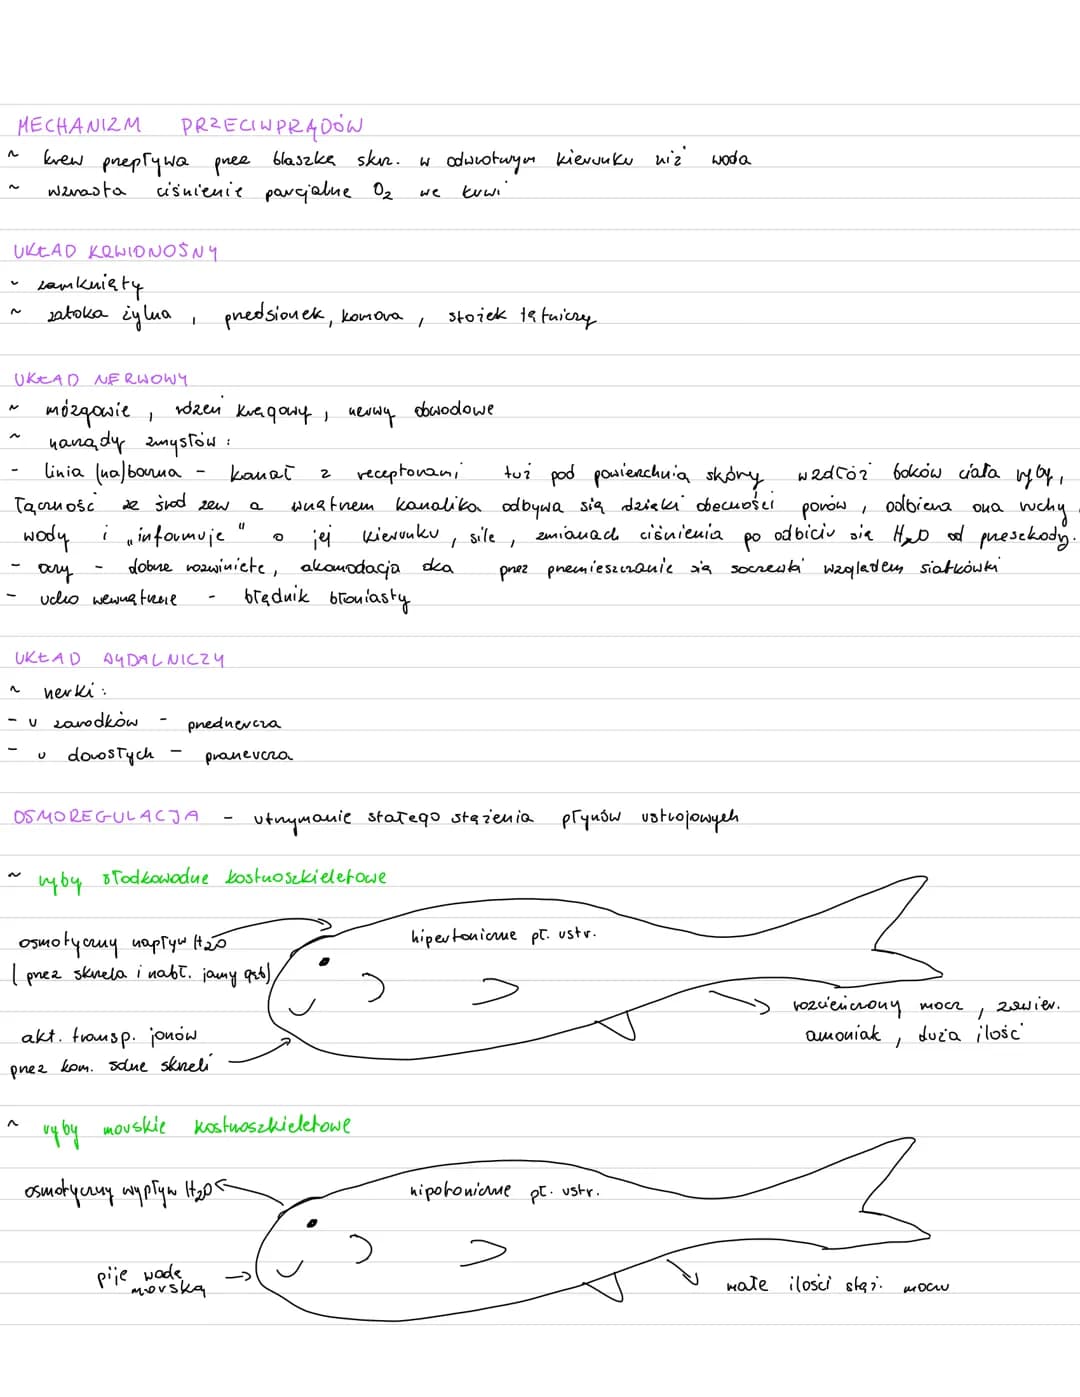 MECHANIZM PRZECIWPRĄDÓW
~ krew przepływa przez blaszkę skrz. w odwrotnym kierunku niż woda
~ wzrasta ciśnienie parcjalne O₂ we krwi
UKŁAD KRWIONOŚNY
~ zamknięty
~ zatoka żylna, przedsionek, komora, stożek tętniczy
UKŁAD NERWOWY
~ mózgowie, rdzeń kręgowy, nerwy obwodowe
~ narządy zmysłów:
- linia (na)boczna - kanał z receptorami tuż pod powierzchnią skóry wzdłóż boków ciała ryby,
łączność ze środ zew a wnętrzem kanalika odbywa się dzięki obecności porów, odbiera ona ruchy
wody i „informuje" o jej kierunku, sile, zmianach ciśnienia po odbiciu się H₂O od przeszkody.
- oczy - dobrze rozwinięte, akomodacja oka przez przemieszczanie się soczewki względem siatkówki
- ucho wewnętrzne - błędnik błoniasty
UKŁAD WYDALNICZY
~ nerki:
- u zarodków - przednercza
- u dorosłych - pranercza
OSMOREGULACJA - utrzymanie stałego stężenia płynów ustrojowych
~ ryby słodkowodne kostnoszkieletowe
osmotyczny napływ H₂O
(przez skrzela i nabł. jamy gęb)
hipertoniczne pł. ustr.
akt. transp. jonów
przez kom. solne skrzeli
rozcieńczony mocz, zawier.
amoniak, duża ilość
~ ryby morskie kostnoszkieletowe
osmotyczny wypływ H₂O
hipotoniczne pł. ustr.
pije wodę
morską
małe ilości stęż. moczu